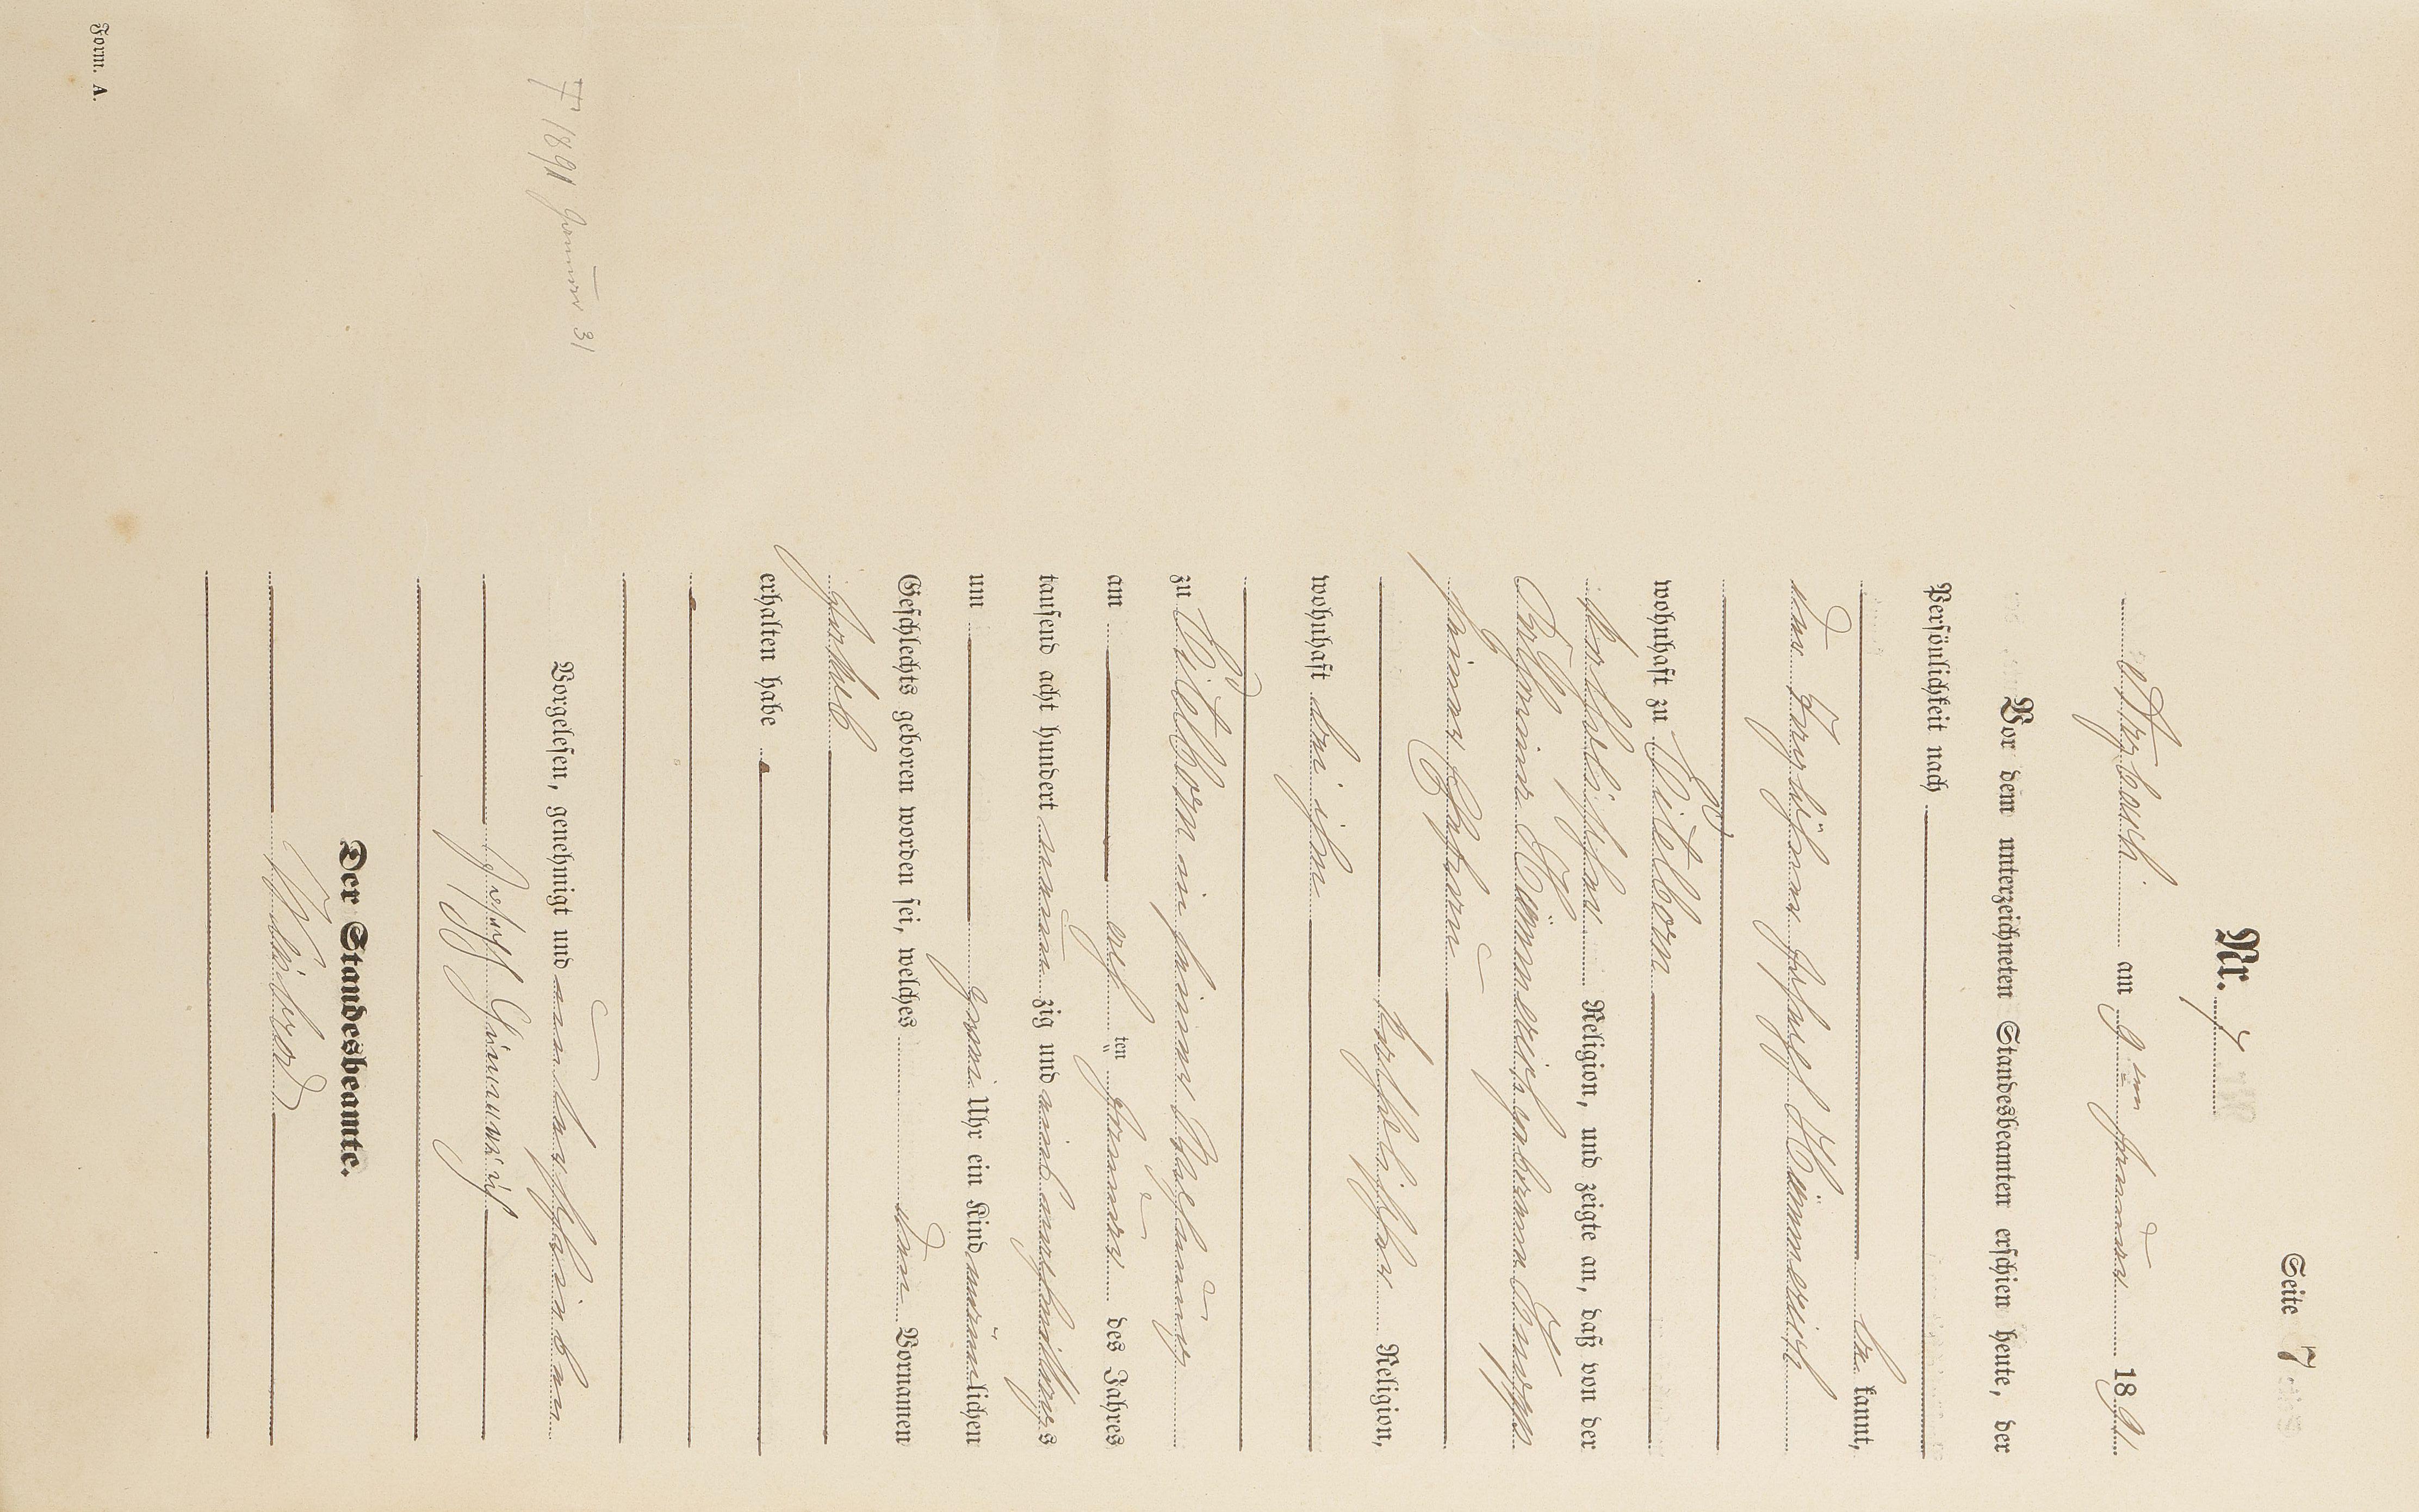 Seite 7
Nr. 7
am 9ten Januar 1891
Vor dem unterzeichneten Standesbeamten erschien heute, der
Persönlichkeit nach
be kannt,
der Taglöhner Joseph Hümmerich
wohnhaft zu Vielbach
katholischer Religion, und zeigte an, daß von der
Hümmerich geborenen
seiner Ehefrau
katholischer Religion,
wohnhaft bei ihm
zu in seiner Wohnung
am acht ten Januar des Jahres
tausend acht hundert neun zig und eins
um Uhr ein Kind männlichen
Geschlechts geboren worden sei, welches den Vornamen
Jakob
erhalten habe
Vorgelesen, genehmigt und unterschrieben
Joseph Hümmerich
Der Standesbeamte.
† 1891 Januar 31
Form. A.